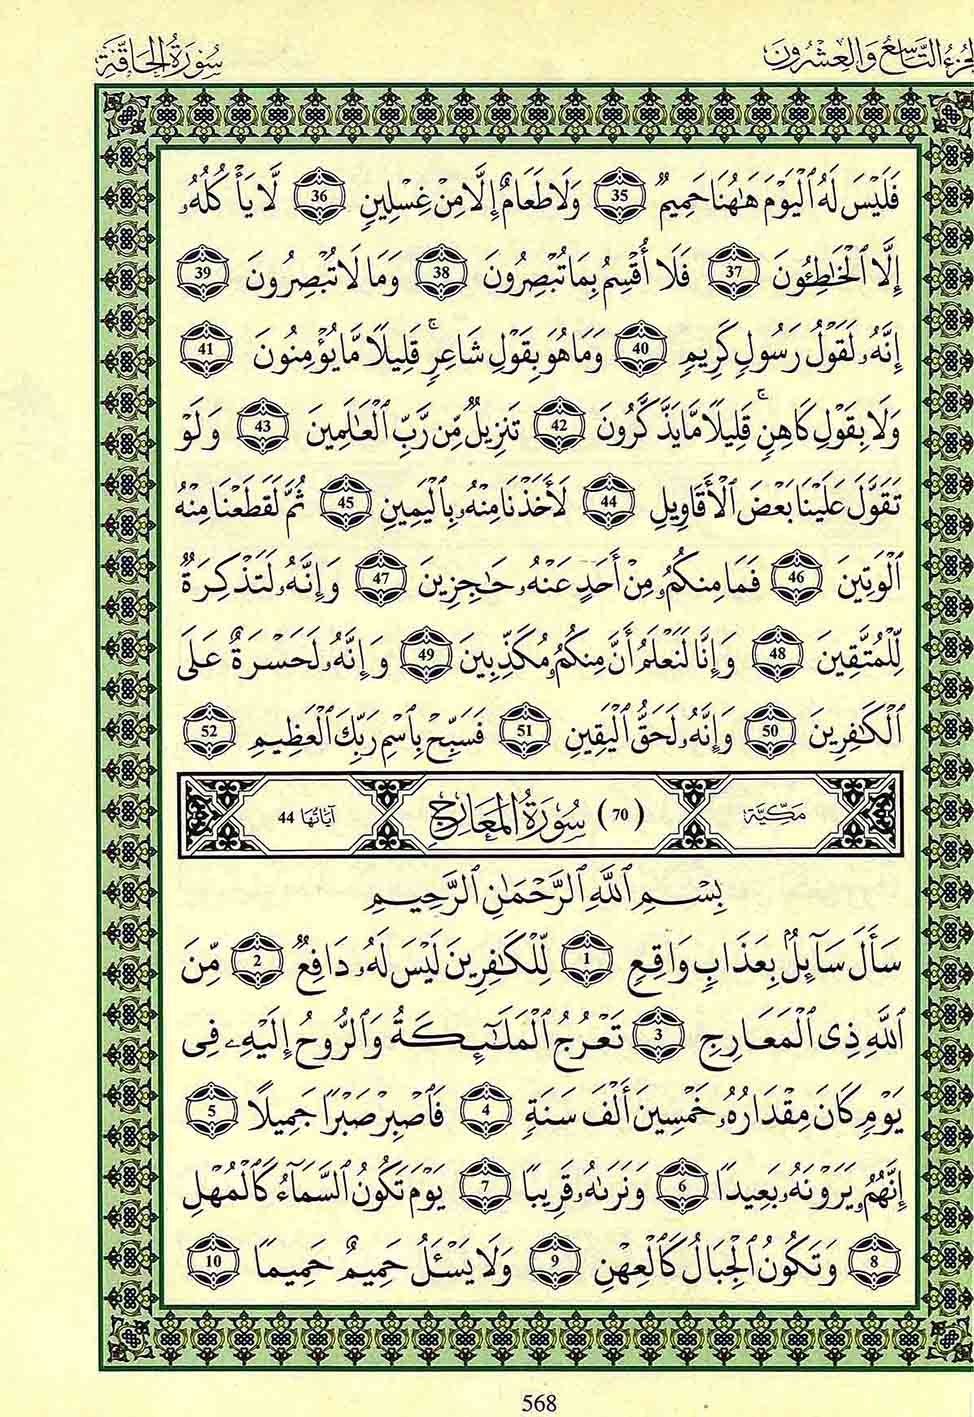 الجزء التاسع والعشرون
سُورَةُ الحَاقَّةِ
فَلَيْسَ لَهُ ٱلْيَوْمَ هَٰهُنَا حَمِيمٌ 35 وَلَا طَعَامٌ إِلَّا مِنْ غِسْلِينٍ 36 لَّا يَأْكُلُهُۥ
إِلَّا ٱلْخَٰطِـُٔونَ 37 فَلَا أُقْسِمُ بِمَا تُبْصِرُونَ 38 وَمَا لَا تُبْصِرُونَ 39
إِنَّهُۥ لَقَوْلُ رَسُولٍ كَرِيمٍ 40 وَمَا هُوَ بِقَوْلِ شَاعِرٍ ۚ قَلِيلًا مَّا يُؤْمِنُونَ 41
وَلَا بِقَوْلِ كَاهِنٍ ۚ قَلِيلًا مَّا يَذَّكَّرُونَ 42 تَنزِيلٌ مِّن رَّبِّ ٱلْعَٰلَمِينَ 43 وَلَوْ
تَقَوَّلَ عَلَيْنَا بَعْضَ ٱلْأَقَاوِيلِ 44 لَأَخَذْنَا مِنْهُ بِٱلْيَمِينِ 45 ثُمَّ لَقَطَعْنَا مِنْهُ
ٱلْوَتِينَ 46 فَمَا مِنكُم مِّنْ أَحَدٍ عَنْهُ حَٰجِزِينَ 47 وَإِنَّهُۥ لَتَذْكِرَةٌ
لِّلْمُتَّقِينَ 48 وَإِنَّا لَنَعْلَمُ أَنَّ مِنكُم مُّكَذِّبِينَ 49 وَإِنَّهُۥ لَحَسْرَةٌ عَلَى
ٱلْكَٰفِرِينَ 50 وَإِنَّهُۥ لَحَقُّ ٱلْيَقِينِ 51 فَسَبِّحْ بِٱسْمِ رَبِّكَ ٱلْعَظِيمِ 52
مَكِّيَّة (70) سُورَةُ المَعَارِجِ آيَاتُهَا 44
بِسْمِ ٱللَّهِ ٱلرَّحْمَٰنِ ٱلرَّحِيمِ
سَأَلَ سَآئِلٌۢ بِعَذَابٍ وَاقِعٍ 1 لِّلْكَٰفِرِينَ لَيْسَ لَهُۥ دَافِعٌ 2 مِّنَ
ٱللَّهِ ذِى ٱلْمَعَارِجِ 3 تَعْرُجُ ٱلْمَلَٰٓئِكَةُ وَٱلرُّوحُ إِلَيْهِۦ فِى
يَوْمٍ كَانَ مِقْدَارُهُۥ خَمْسِينَ أَلْفَ سَنَةٍ 4 فَٱصْبِرْ صَبْرًا جَمِيلًا 5
إِنَّهُمْ يَرَوْنَهُۥ بَعِيدًا 6 وَنَرَىٰهُ قَرِيبًا 7 يَوْمَ تَكُونُ ٱلسَّمَآءُ كَٱلْمُهْلِ
8 وَتَكُونُ ٱلْجِبَالُ كَٱلْعِهْنِ 9 وَلَا يَسْـَٔلُ حَمِيمٌ حَمِيمًا 10
568